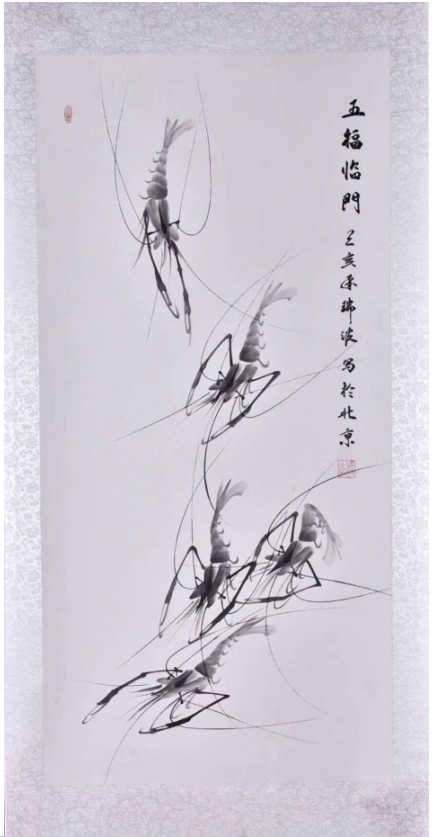 五福临門 己亥年瑞波写於北京